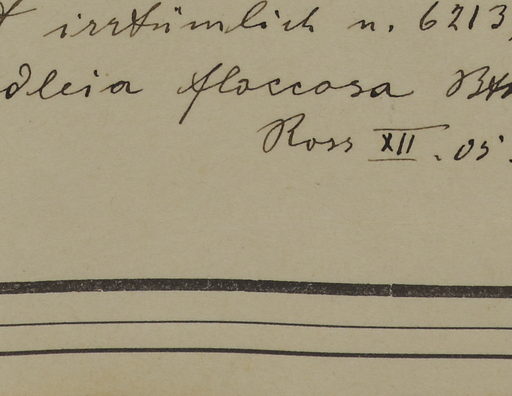 irrtümlich n. 6213,
dleia floccosa Bth
Ross XII. 05.